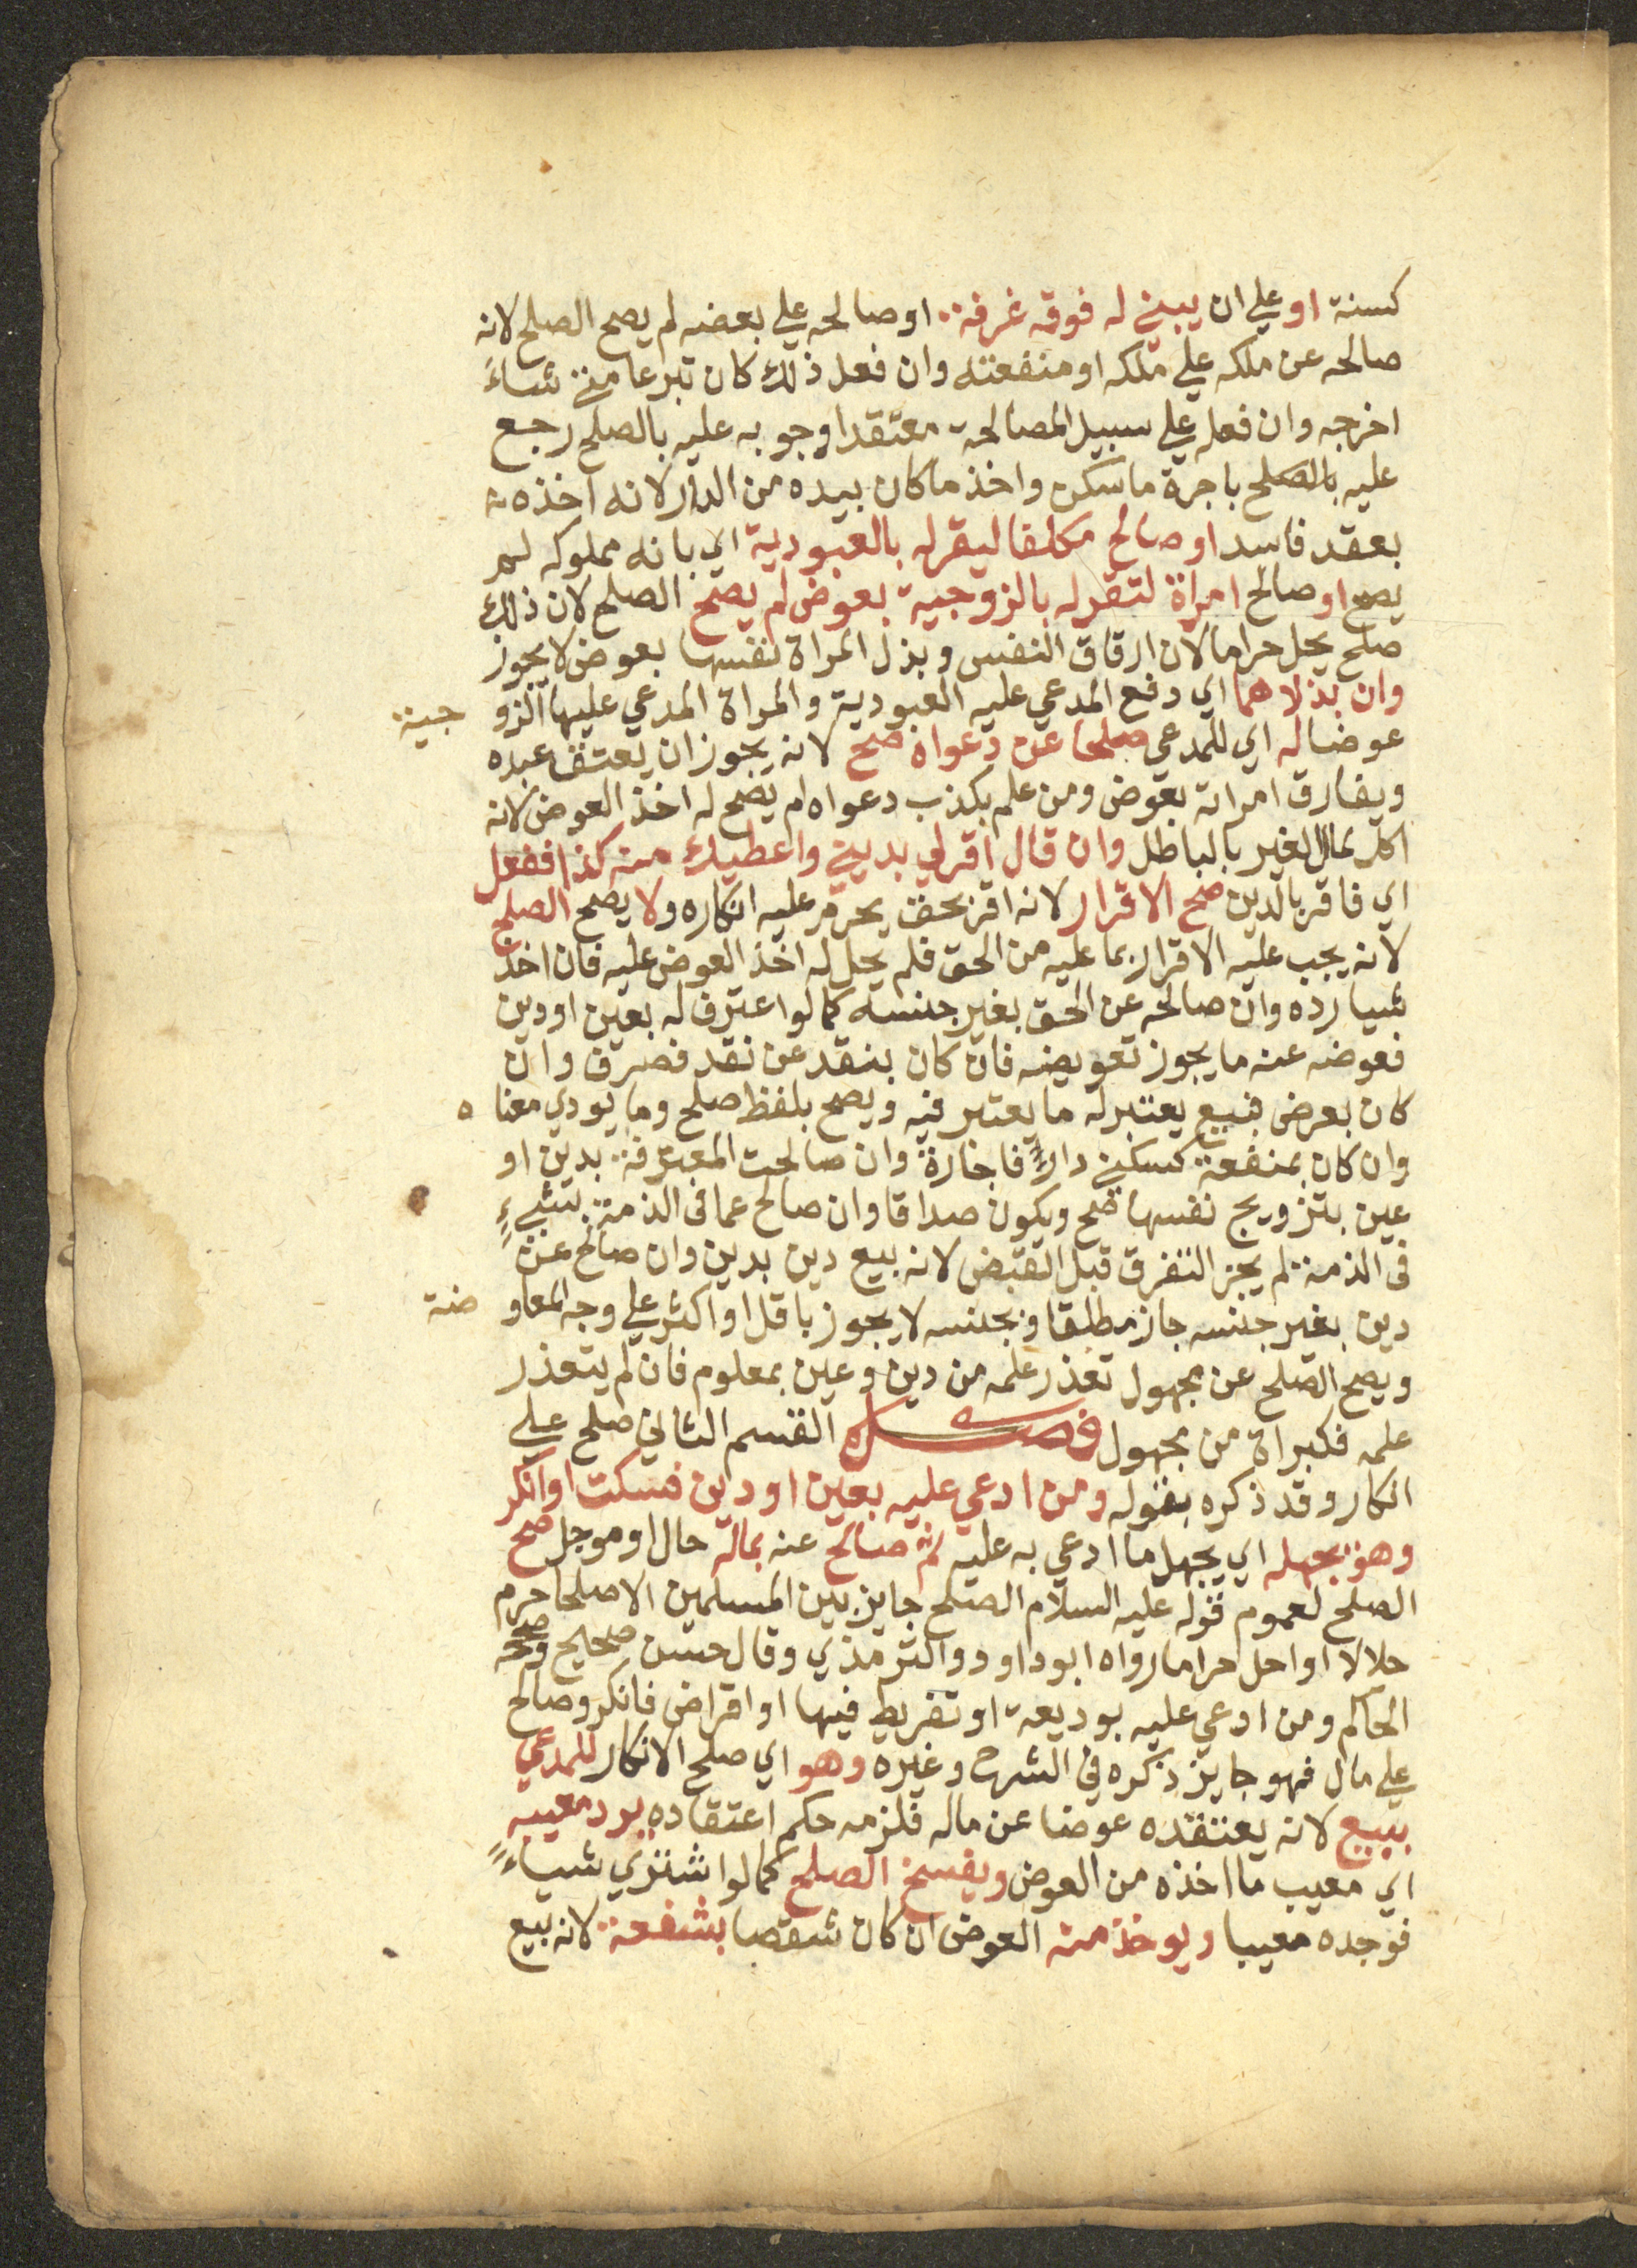 كسنة او علي ان يبني له فوقه غرفة او صالحه علي بعضه لم يصح الصلح لانه
صالحه عن ملكه علي ملكه او منفعته وان فعل ذلك كان تبرعا متي شاء
اخرجه وان فعله علي سبيل المصالحة معتقدا وجوبه عليه بالصلح رجع
عليه بالصلح باجرة ما سكن واخذ ما كان بيده من الدار لانه اخذه
بعقد فاسد او صالح مكلفا ليقر له بالعبودية اي بانه مملوكه لم
يصح او صالح امراة لتقر له بالزوجية بعوض لم يصح الصلح لان ذلك
صلح يحل حراما لان ارقاق النفس وبذل المراة نفسها بعوض لا يجوز
وان بذلاهما اي دفع المدعي عليه العبودية والمراة المدعي عليها الزو جية
عوضا له اي للمدعي صلحا عن دعواه صح لانه يجوز ان يعتق عبده
ويفارق امراته بعوض ومن علم بكذب دعواه لم يصح له اخذ العوض لانه
اكل لمال الغير بالباطل وان قال اقر لي بديني واعطيك منه كذا ففعل
اي فاقر بالدين صح الاقرار لانه اقر بحق يحرم عليه انكاره ولا يصح الصلح
لانه يجب عليه الاقرار بما عليه من الحق فلم يحل له اخذ العوض عليه فان اخذ
شيا رده وان صالحه عن الحق بغير جنسه كما لو اعترف له بعين او دين
فعوضه عنه ما يجوز تعويضه فان كان بنقد عن نقد فصرف وان
كان بعرض فبيع يعتبر له ما يعتبر فيه ويصح بلفظ صلح وما يودي معنا ه
وان كان بمنفعة كسكني دار فاجارة وان صالحت المعترفة بدين او
عين بتزويج نفسها صح ويكون صداقا وان صالح عما في الذمة بشيء
في الذمة لم يجز التفرق قبل القبض لانه بيع دين بدين وان صالح عن
دين بغير جنسه جاز مطلقا وبجنسه لا يجوز باقل او اكثر علي وجه المعاو ضة
ويصح الصلح عن مجهول تعذر علمه من دين وعين بمعلوم فان لم يتعذر
علمه فكبراة من مجهول فصل القسم الثاني صلح علي
انكار وقد ذكره بقوله ومن ادعي عليه بعين او دين فسكت او انكر
وهو يجهله اي يجهل ما ادعي به عليه ثم صالح عنه بمال حال او موجل صح
الصلح لعموم قوله عليه السلام الصلح جايز بين المسلمين الا صلحا حرم
حلالا او احل حراما رواه ابو داود والترمذي وقال حسن صحيح وصححه
الحاكم ومن ادعي عليه بوديعة او تفريط فيها او اقراض فانكر وصالح
علي مال فهو جايز ذكره في الشرح وغيره وهو اي صلح الانكار للمدعي
بيبع لانه يعتقده عوضا عن ماله فلزمه حكم اعتقاده يرد معيبه
اي معيب ما اخذه من العوض ويفسخ الصلح كما لو اشتري شياء
فوجده معيبا ويوخذ منه العوض ان كان شقصا بشفعة لانه بيع